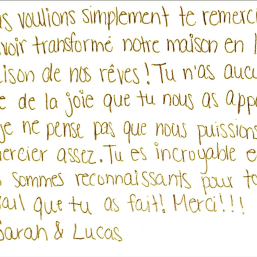 us voulions simplement te remerci
voir transformé notre maison en l
ison de nos rêves! Tu n'as auc
e de la joie que tu nous as appo
je ne pense pas que nous puissions
ercier assez. Tu es incroyable e
s sommes reconnaissants pour to
ail que tu as fait! Merci!!!
Sarah & Lucas